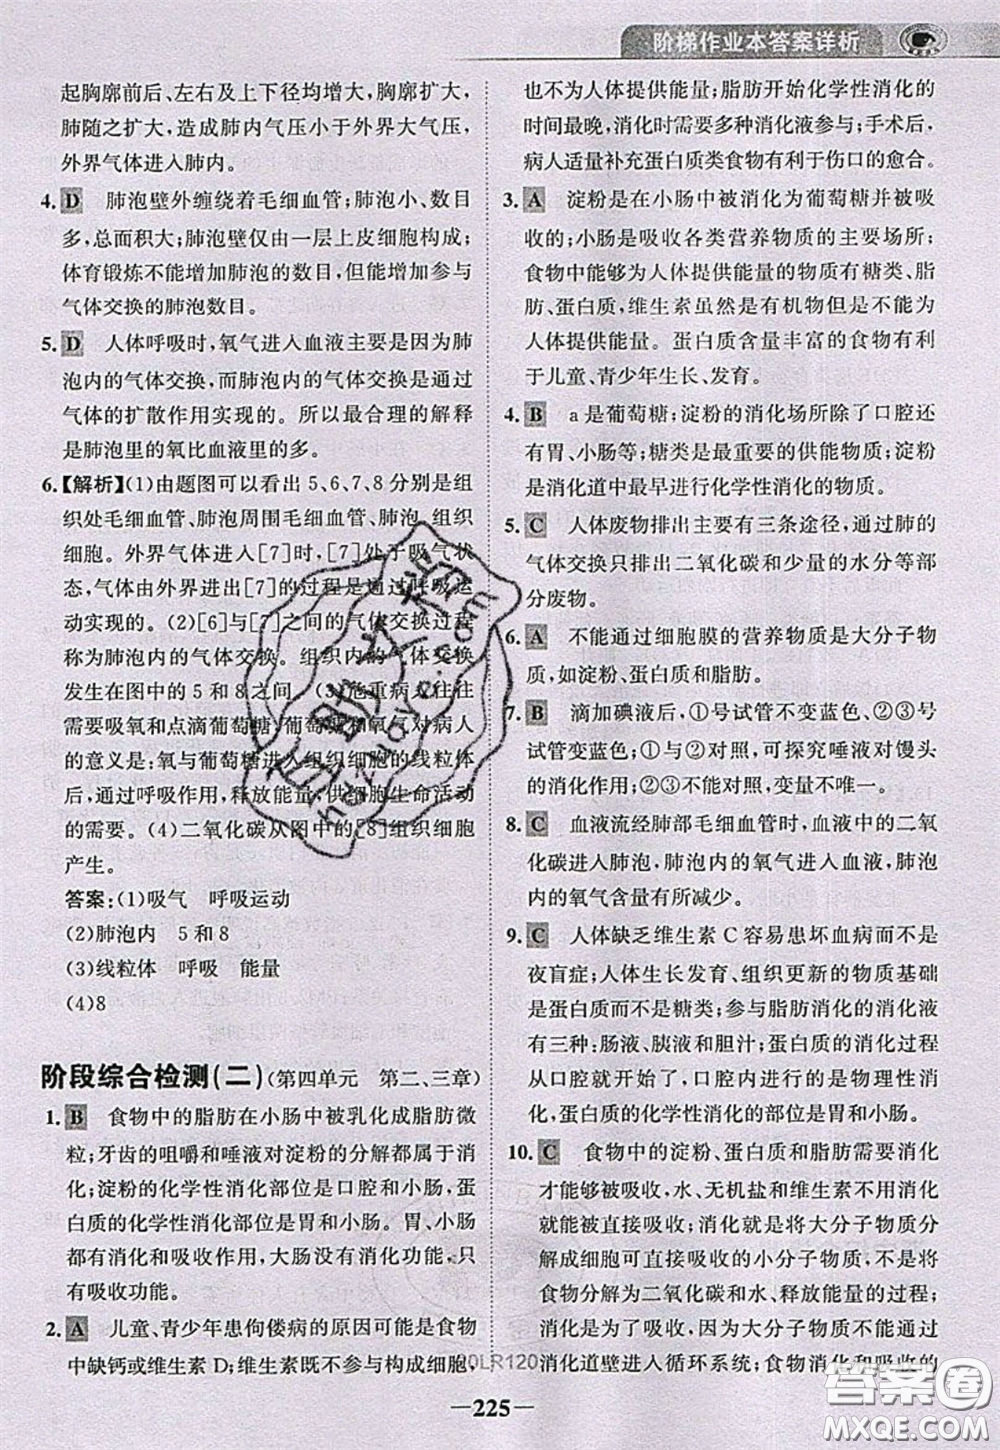 阶梯作业本答案详析
起胸廓前后、左右及上下径均增大,胸廓扩大,
肺随之扩大,造成肺内气压小于外界大气压,
外界气体进入肺内。
4. D 肺泡壁外缠绕着毛细血管;肺泡小、数目
多,总面积大;肺泡壁仅由一层上皮细胞构成;
体育锻炼不能增加肺泡的数目,但能增加参与
气体交换的肺泡数目。
5. D 人体呼吸时,氧气进入血液主要是因为肺
泡内的气体交换,而肺泡内的气体交换是通过
气体的扩散作用实现的。所以最合理的解释
是肺泡里的氧比血液里的多。
6.【解析】(1)由题图可以看出5、6、7、8分别是组
织处毛细血管、肺泡周围毛细血管、肺泡、组织
细胞。外界气体进入[7]时,[7]处于吸气状
态,气体由外界进出[7]的过程是通过呼吸运
动实现的。(2)[6]与[7]之间的气体交换过程
称为肺泡内的气体交换。组织内的气体交换
发生在图中的5和8之间。(3)危重病人往往
需要吸氧和点滴葡萄糖,葡萄糖和氧气对病人
的意义是:氧与葡萄糖进入组织细胞的线粒体
后,通过呼吸作用,释放能量,供细胞生命活动
的需要。(4)二氧化碳从图中的[8]组织细胞
产生。
答案:(1)吸气 呼吸运动
(2)肺泡内 5和8
(3)线粒体 呼吸 能量
(4)8
阶段综合检测(二)(第四单元 第二、三章)
1. B 食物中的脂肪在小肠中被乳化成脂肪微
粒;牙齿的咀嚼和唾液对淀粉的分解都属于消
化;淀粉的化学性消化部位是口腔和小肠,蛋
白质的化学性消化部位是胃和小肠。胃、小肠
都有消化和吸收作用,大肠没有消化功能,只
有吸收功能。
2. A 儿童、青少年患佝偻病的原因可能是食物
中缺钙或维生素D;维生素既不参与构成细胞,
也不为人体提供能量;脂肪开始化学性消化的
时间最晚,消化时需要多种消化液参与;手术后,
病人适量补充蛋白质类食物有利于伤口的愈合。
3. A 淀粉是在小肠中被消化为葡萄糖并被吸
收的;小肠是吸收各类营养物质的主要场所;
食物中能够为人体提供能量的物质有糖类、脂
肪、蛋白质,维生素虽然是有机物但是不能为
人体提供能量。蛋白质含量丰富的食物有利
于儿童、青少年生长、发育。
4. B a是葡萄糖;淀粉的消化场所除了口腔还
有胃、小肠等;糖类是最重要的供能物质,淀粉
是消化道中最早进行化学性消化的物质。
5. C 人体废物排出主要有三条途径,通过肺的
气体交换只排出二氧化碳和少量的水分等部
分废物。
6. A 不能通过细胞膜的营养物质是大分子物
质,如淀粉、蛋白质和脂肪。
7. B 滴加碘液后,①号试管不变蓝色、②③号
试管变蓝色;①与②对照,可探究唾液对馒头
的消化作用;②③不能对照,变量不唯一。
8. C 血液流经肺部毛细血管时,血液中的二氧
化碳进入肺泡,肺泡内的氧气进入血液,肺泡
内的氧气含量有所减少。
9. C 人体缺乏维生素C容易患坏血病而不是
夜盲症;人体生长发育、组织更新的物质基础
是蛋白质而不是糖类;参与脂肪消化的消化液
有三种:肠液、胰液和胆汁;蛋白质的消化过程
从胃开始,以后进入小肠;口腔内进行物理性消
化,蛋白质的化学性消化的部位是胃和小肠。
10. C 食物中的淀粉、蛋白质和脂肪需要消化
才能够被吸收,水、无机盐和维生素不经消化
就能被直接吸收;消化就是将大分子物质分
解成细胞可直接吸收的小分子物质,不是将
食物分解为二氧化碳和水等物质、释放能量
的过程。大部分营养物质在小肠被吸收,穿过
消化道壁进入循环系统;食物消化和吸收的
20LR120
225
答案圈
MXQE.COM